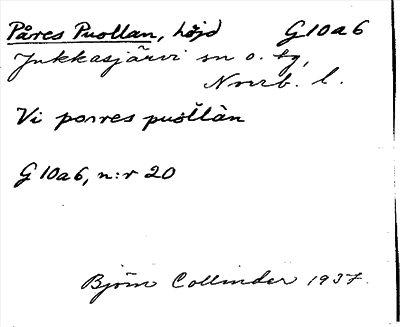 Påres Puollan, höjd G10a6
Jukkasjärvi sn o. tg,
Norrb. l.
Vi porres puollàn
G10a6, n:r 20
Björn Collinder 1937.